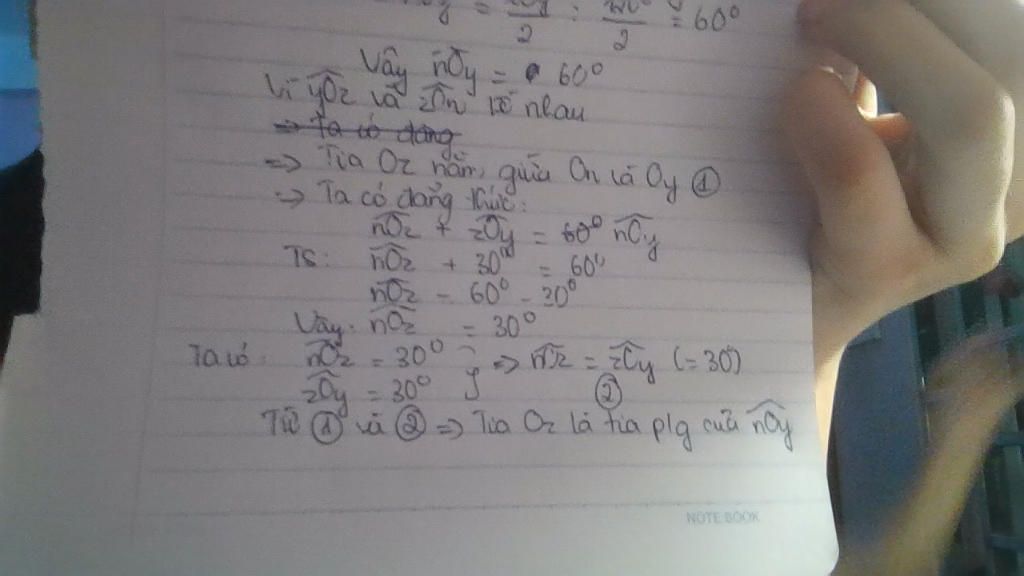 = /2 : /2 = 60°
Vậy nOy = 60°
Vì yOz và zOn kề nhau
=> Ta có đẳng
=> Tia Oz nằm giữa On và Oy ①
=> Ta có đẳng thức:
nOz + zOy = 60° nOy
TS: nOz + 30° = 60°
nOz = 60° - 30°
Vậy: nOz = 30°
Ta có: nOz = 30° } => nOz = zOy (= 30)
zOy = 30° ②
Từ ① và ② => Tia Oz là tia p/g của nOy
NOTE BOOK